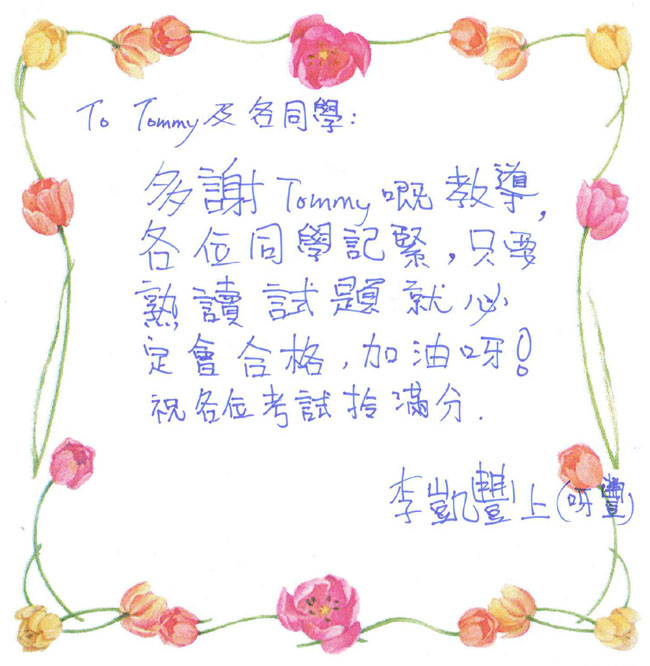 To Tommy及各同學:
多謝Tommy嘅教導,
各位同學記緊,只要
熟讀試題就必
定會合格,加油呀!
祝各位考試拎滿分.
李凱豐上(呀豐)